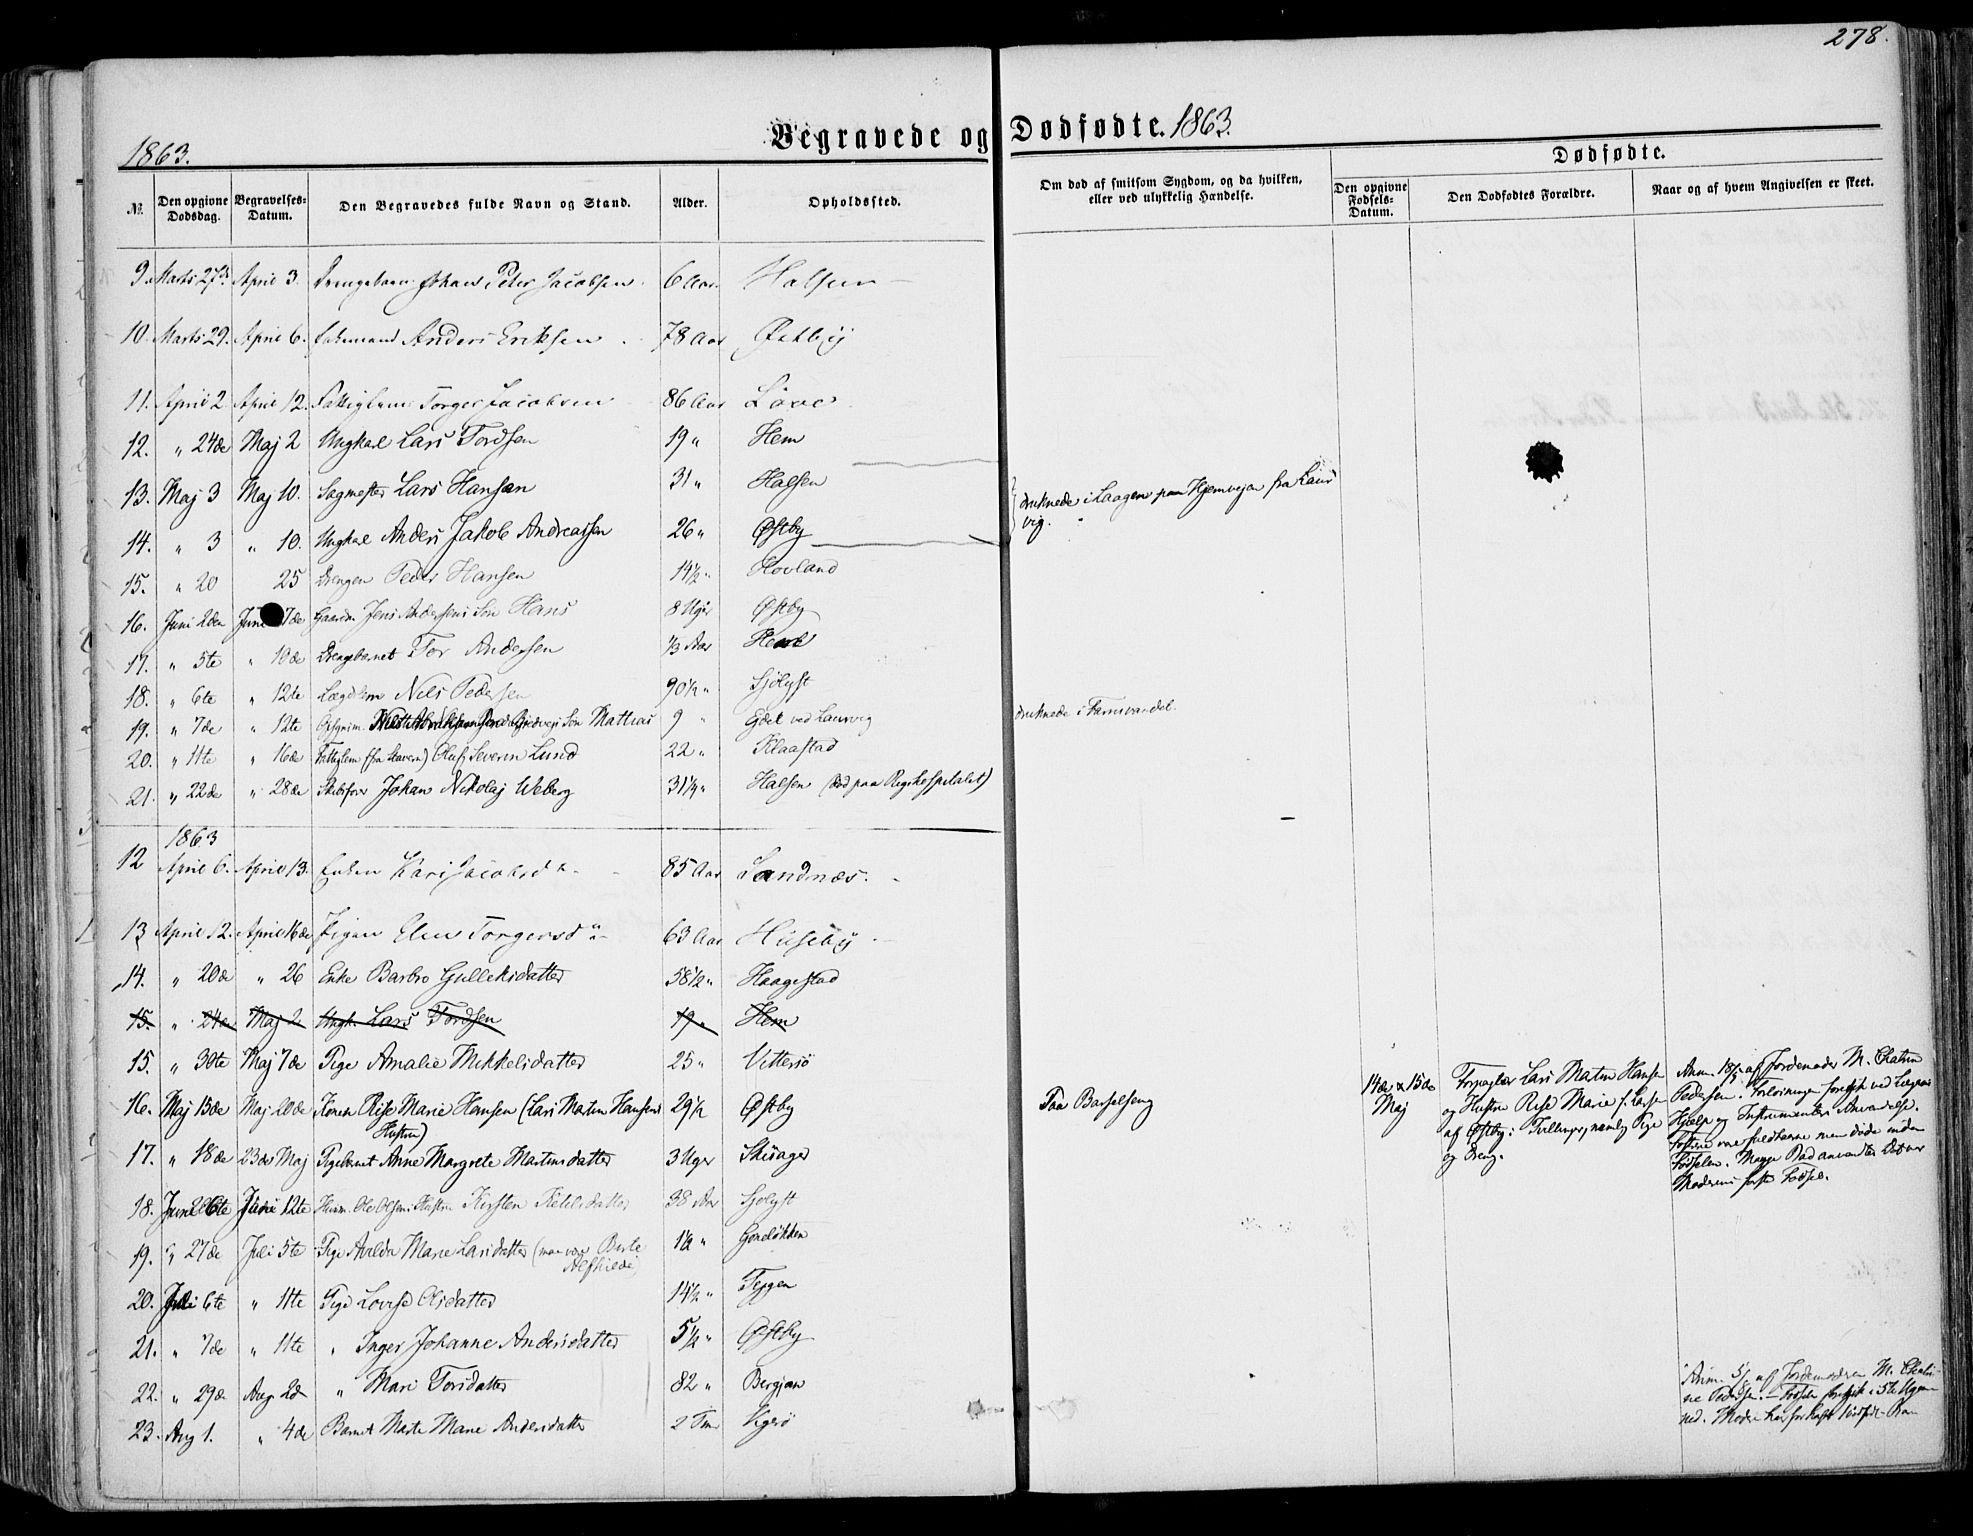 278.
1863.
Begravede og Dødfødte. 1863.
Dødfødte.
№.
Den opgivne Dødsdag.
Begravelses-Datum.
Den Begravedes fulde Navn og Stand.
Alder.
Opholdssted.
Om død af smitsom Sygdom, og da hvilken, eller ved ulykkelig Hændelse.
Den opgivne Fødsels-Datum.
Den Dødfødtes Forældre.
Naar og af hvem Angivelsen er skeet.
9. Marts 27de April 3. Drengebarn Johan Peter Jacobsen 6 Aar Halsen
10. Marts 29. April 6. Enkemand Anders Eriksen 78 Aar Østby
11. April 2 April 12. Fattiglem Torger Jacobsen 86 Aar
12. " 24de Maj 2 Ungkarl Lars Tordsen 19 " Hem
13. Maj 3 Maj 10. Sagmester Lars Hansen 31 " Halsen druknede i Laagen paa Hjemvejen fra Laur
14. " 3 " 10. Ungkarl Anders Jakob Andreassen 26 " Østby vig.
15. " 20 25 Drengen Peder Hansen 14½ " Hovland
16. Juni 2den Juni 7de Gaardm. Jens Andersens Søn Hans 8 Uger Østby
17. " 5te " 10de Drengebarnet Tor Andersen ⅓ Aar
18. " 6te " 12te Lægdslem Nils Pedersen 90½ " Sjølyst
19. " 7de " 12te Søn Mathias 9 " ved Laurvig druknede i Farrisvandet.
20. " 11te " 16de Fattiglem (fra Stavern) Oluf Severin Lund 22 " Klaastad
21. " 22de " 28de Skibsfører Johan Nikolaj Weberg 31¼ " Halsen (død paa Rigshospitalet)
1863
12 April 6. April 13. Enken Kari Jacobsd. 85 Aar Sandnæs.
13 April 12. April 16de Pigen Torgersd. 63 Aar Huseby
14. " 20de " 26 Enke Barbro Gulleksdatter 58½ " Haagestad
15. " 24de Maj 2 Ungk. Lars Tordsen 19 " Hem
15. " 30te Maj 7de Pige Amalie Mikkelsdatter 25 " Vittersø
16. Maj 15de Maj 20de Konen Rise Marie Hansen (Lars Martin Hansens 29½ Østby Paa Barselseng
Hustru)
14de & 15de
Maj
Forpagter Lars Martin Hansen
og Hustru Rise Marie f. Larsen
af Østby: Tvillinger, nemlig Pige
og Dreng.
Anm. af Jordemoder M. Chatrin
Pedersen. Forløsningen foregik ved Lægens
Hjælp og Instrumenters Anvendelse.
Fostrene vare fuldbaarne men døde inden
Fødselen. Mange Bad anvendtes. Det var
Moderens første Fødsel.
17. " 18de 23de Maj Pigebarnet Anne Margrete Martinsdatter 3 Uger Skisager
18. Juni 6te Juni 12te Husm. Ole Olsens Hustru Kirsten Ketilsdatter 38 Aar Sjølyst
19. " 27de Juli 5te Pige Avilda Marie Larsdatter 1½ "
20. Juli 6te " 11te Pige Lovise Olsdatter 14½ " Teppen
21. " 7de " 11te " Inger Johanne Andersdatter 5½ " Østby
22. " 29de Aug. 2d " Mari Torsdatter 82 " Bergjan
23. Aug 1. " 4de Barnet Marte Marie Andersdatter 2 Tim Vigersø
Anm. af Jordemoderen M. Chatri-
ne Pedersen. — Fødselen foregik i